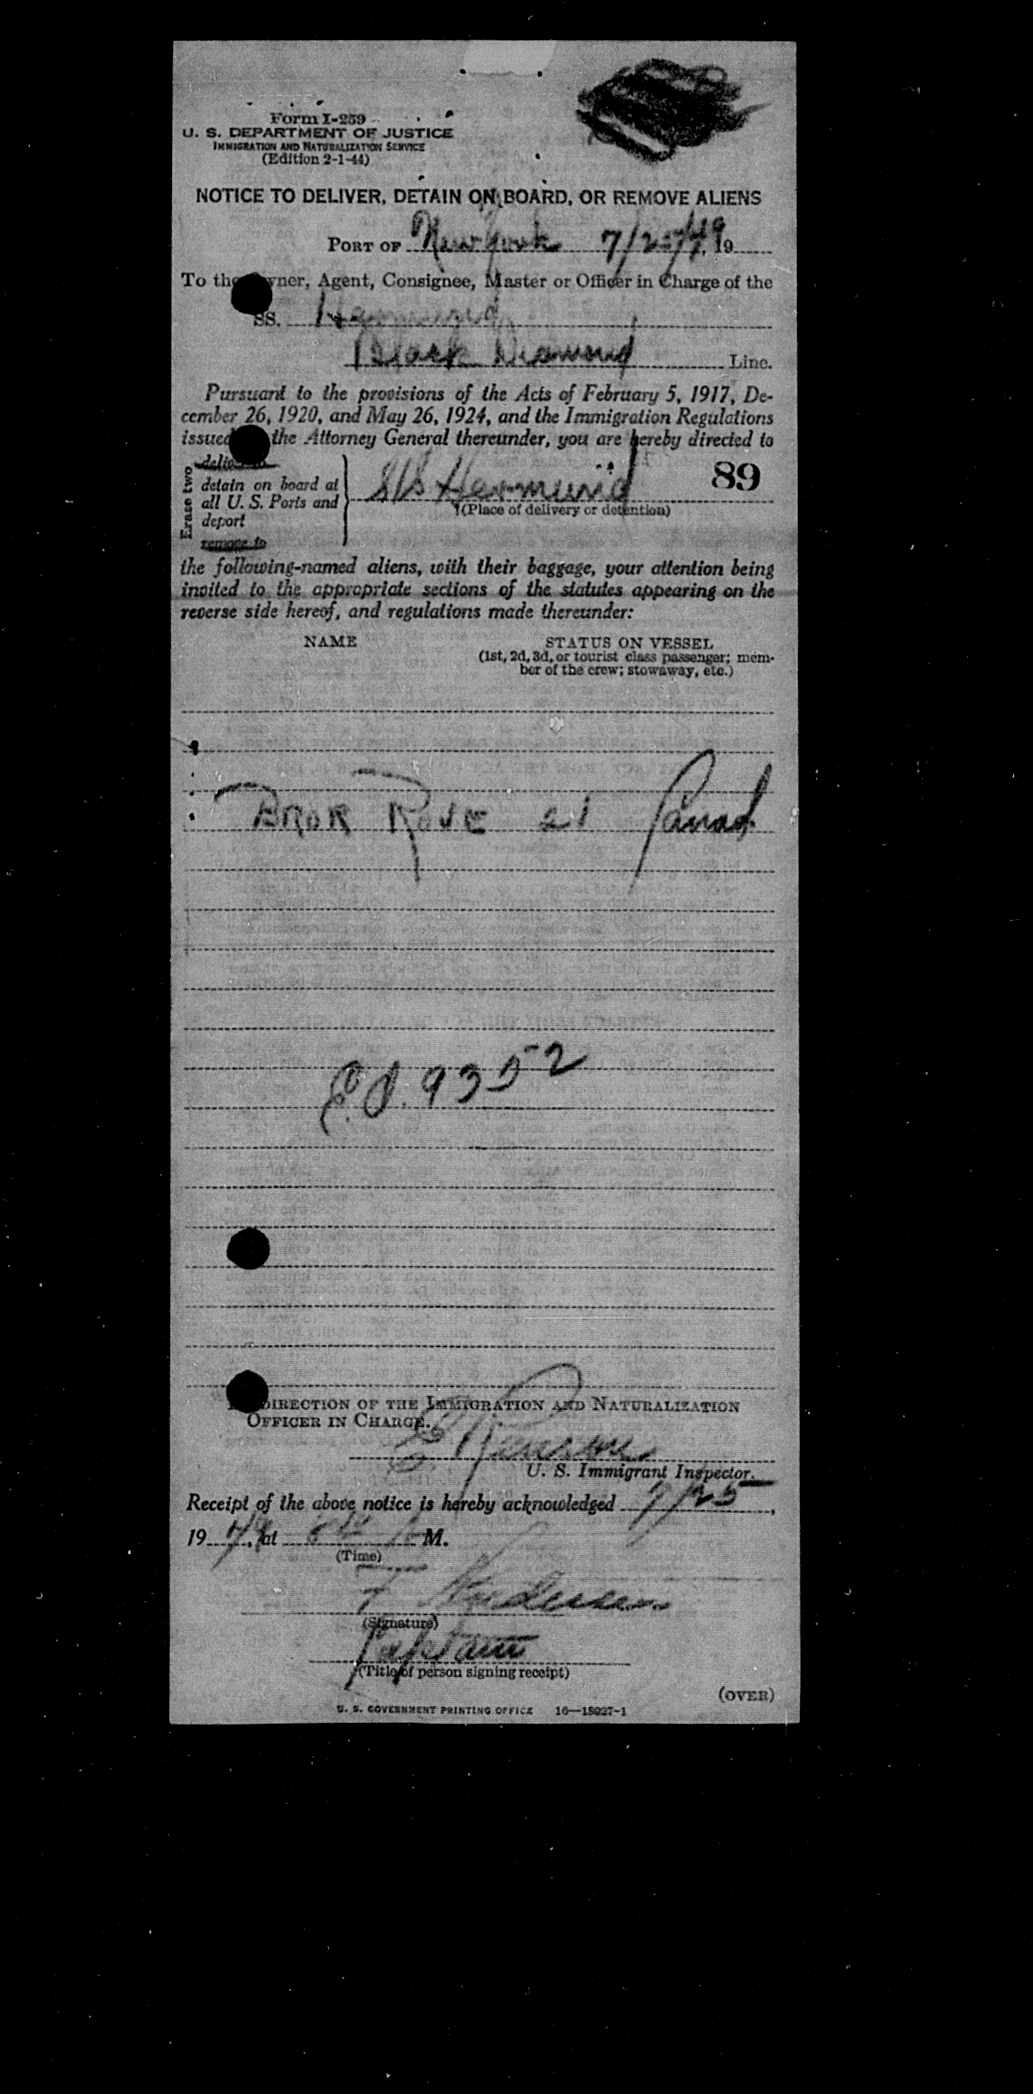 Form I-259
U. S. DEPARTMENT OF JUSTICE
IMMIGRATION AND NATURALIZATION SERVICE
(Edition 2-1-44)
NOTICE TO DELIVER, DETAIN ON BOARD, OR REMOVE ALIENS
PORT OF New York 7/25/49, 19
To the Owner, Agent, Consignee, Master or Officer in Charge of the
SS. Hermund
Black Diamond Line.
Pursuant to the provisions of the Acts of February 5, 1917, De-
cember 26, 1920, and May 26, 1924, and the Immigration Regulations
issued the Attorney General thereunder, you are hereby directed to
Erase two
deliver to
detain on board at
all U. S. Ports and
deport
remove to
S/S Hermund 89
(Place of delivery or detention)
the following-named aliens, with their baggage, your attention being
invited to the appropriate sections of the statutes appearing on the
reverse side hereof, and regulations made thereunder:
NAME STATUS ON VESSEL
(1st, 2d, 3d, or tourist class passenger; mem-
ber of the crew; stowaway, etc.)
BROR ROVE 21
9352
DIRECTION OF THE IMMIGRATION AND NATURALIZATION
OFFICER IN CHARGE.
E
U. S. Immigrant Inspector.
Receipt of the above notice is hereby acknowledged 7/25,
1949, at M.
(Time)
(Signature)
Captain
(Title of person signing receipt)
(OVER)
U. S. GOVERNMENT PRINTING OFFICE 16—18027-1